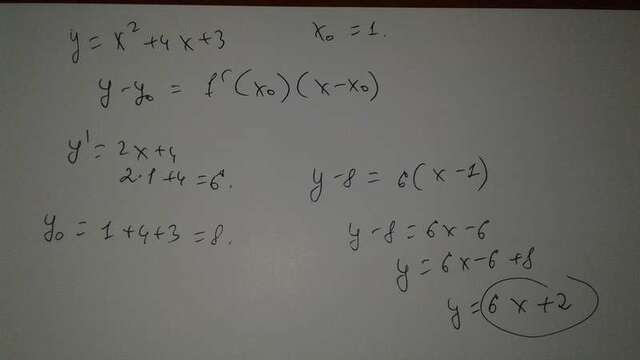 y = x² + 4x + 3
x₀ = 1.
y - y₀ = f'(x₀)(x - x₀)
y' = 2x + 4
2·1 + 4 = 6.
y₀ = 1 + 4 + 3 = 8.
y - 8 = 6(x - 1)
y - 8 = 6x - 6
y = 6x - 6 + 8
y = 6x + 2